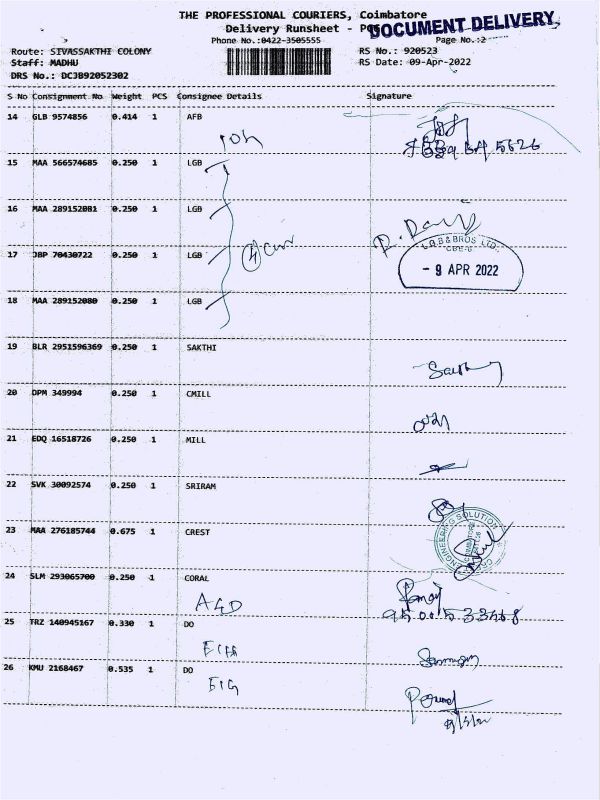 THE PROFESSIONAL COURIERS, Coimbatore
Delivery Runsheet - POD
DOCUMENT DELIVERY
Phone No.:0422-3505555
Page No.:2
Route: SIVASSAKTHI COLONY
RS No.: 920523
Staff: MADHU
RS Date: 09-Apr-2022
DRS No.: DCJB92052302
S No Consignment No Weight PCS Consignee Details Signature
14 GLB 9574856 0.414 1 AFB
15 MAA 566574685 0.250 1 LGB
16 MAA 289152081 0.250 1 LGB
17 JBP 70430722 0.250 1 LGB
L.G.B & BROS LTD.,
CBE-6
- 9 APR 2022
18 MAA 289152080 0.250 1 LGB
19 BLR 2951596369 0.250 1 SAKTHI
20 DPM 349994 0.250 1 CMILL
21 EDQ 16518726 0.250 1 MILL
22 SVK 30092574 0.250 1 SRIRAM
23 MAA 276185744 0.675 1 CREST
ENGINEERING SOLUTION
24 SLM 293065700 0.250 1 CORAL
25 TRZ 140945167 0.330 1 DO
26 KMU 2168467 0.535 1 DO